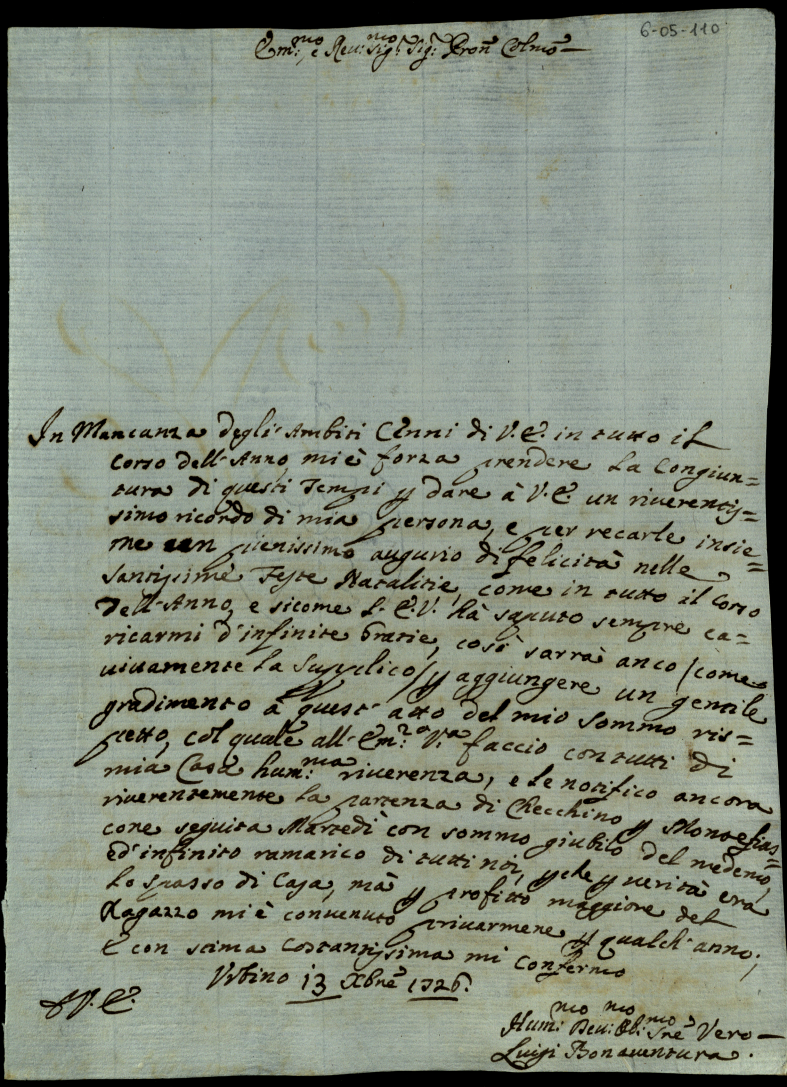 6-05-110
Em:mo e Reu:mo Sig:r Sig:r Pron Colmo
In Mancanza degli Ambiti Cenni di V.E. in tutto il
corso dell'Anno, mi è forza prendere la Congiun=
tura di questi Tempi p dare à V.E. un riverentis=
simo ricordo di mia persona, e per recarle insie=
me un pienissimo augurio di felicità nelle
Santissime Feste Natalitie, come in tutto il Corso
dell'Anno, e sicome L'E.V. hà saputo sempre ca=
ricarmi d'infinite Gratie, così sarrà anco /come
uiuamente La Supplico/ p aggiungere un gentile
gradimento à quest'atto del mio sommo ris=
petto, col quale all'Em:za V:ra faccio con tutti di
mia Casa hum:ma riverenza, e le notifico ancora
riverentemente la partenza di Checchino p Montefias=
cone seguita Martedì con sommo giubilo del medemo,
ed infinito ramarico di tutti noi, p che p verità era
Lo spasso di Casa, mà p profitto maggiore del
Ragazzo mi è convenuto privarmene p qualch'anno;
E con stima Costantissima mi Confermo
Urbino 13 Xbre 1726.
V.E.
Hum:mo Deu:mo Obl:mo Sre Vero
Luigi Bonaventura.